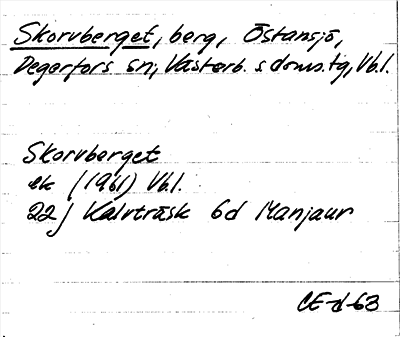 Skorvberget, berg, Östansjö,
Degerfors sn, Västerb. s doms.tg, Vb.l.
Skorvberget
ek (1961) Vb.l.
22J Kalvträsk 6d Manjaur
CE-d-63